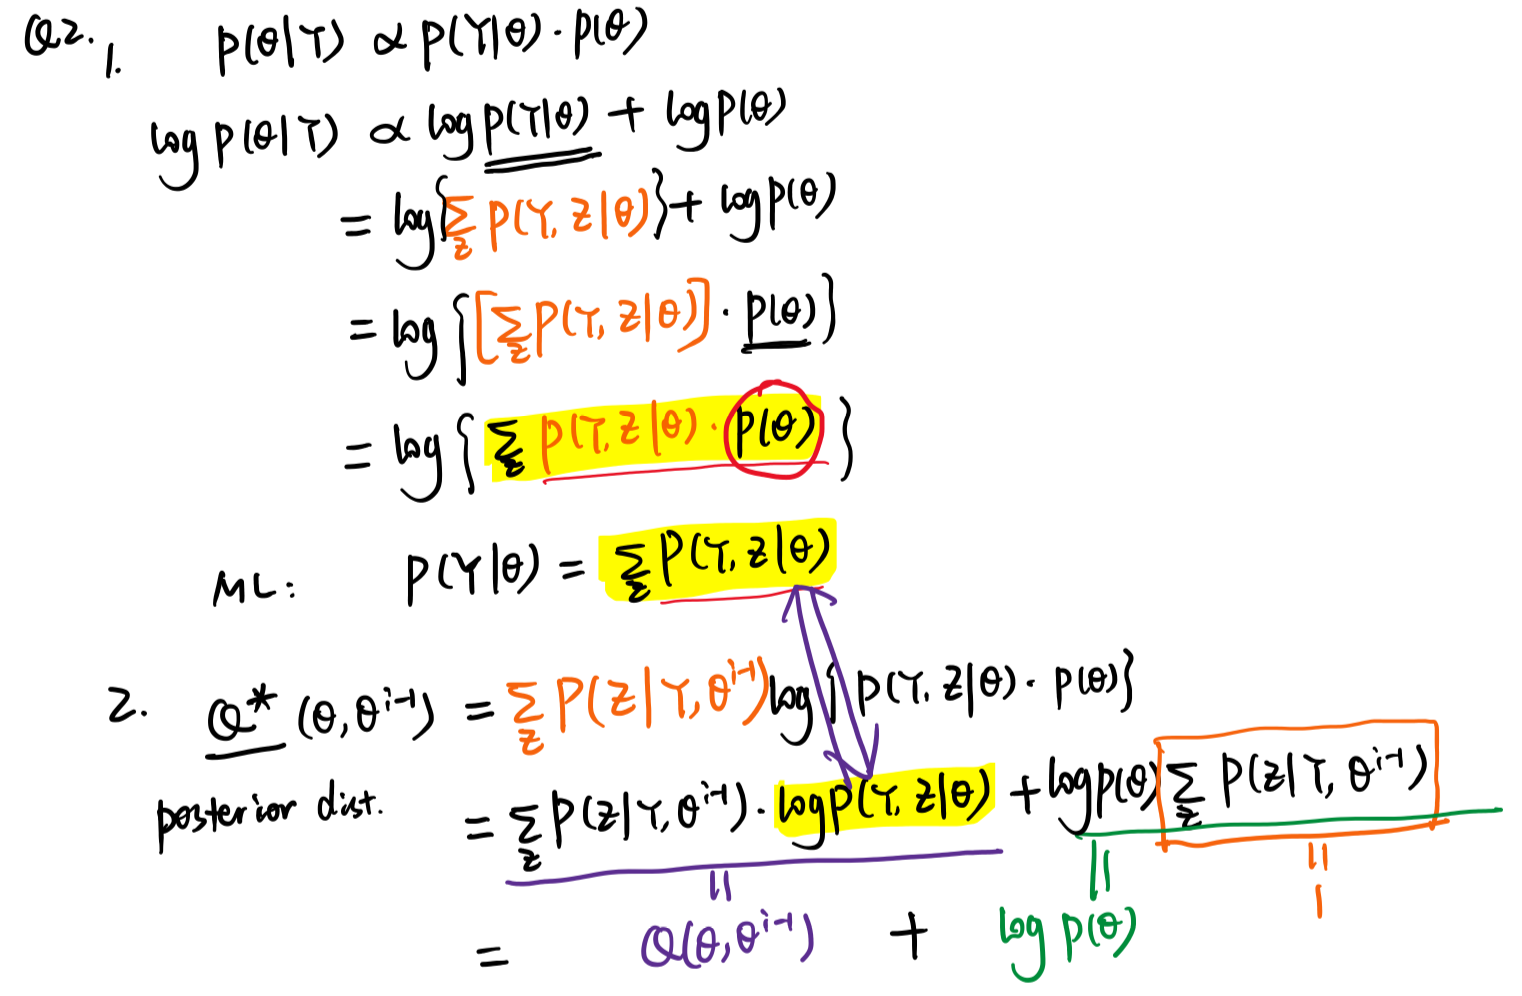 Q2. 1. P(θ|Y) ∝ P(Y|θ) · P(θ)
log P(θ|Y) ∝ log P(Y|θ) + log P(θ)
= log{∑_z P(Y, z|θ)} + log P(θ)
= log{[∑_z P(Y, z|θ)] · P(θ)}
= log{∑_z P(Y, z|θ) · P(θ)}
ML: P(Y|θ) = ∑_z P(Y, z|θ)
2. Q* (θ, θ^{i-1}) = ∑_z P(z|Y, θ^{i-1}) log{P(Y, z|θ) · P(θ)}
posterior dist. = ∑_z P(z|Y, θ^{i-1}) · log P(Y, z|θ) + log P(θ) ∑_z P(z|Y, θ^{i-1})
|| || ||
= Q(θ, θ^{i-1}) + log P(θ) 1